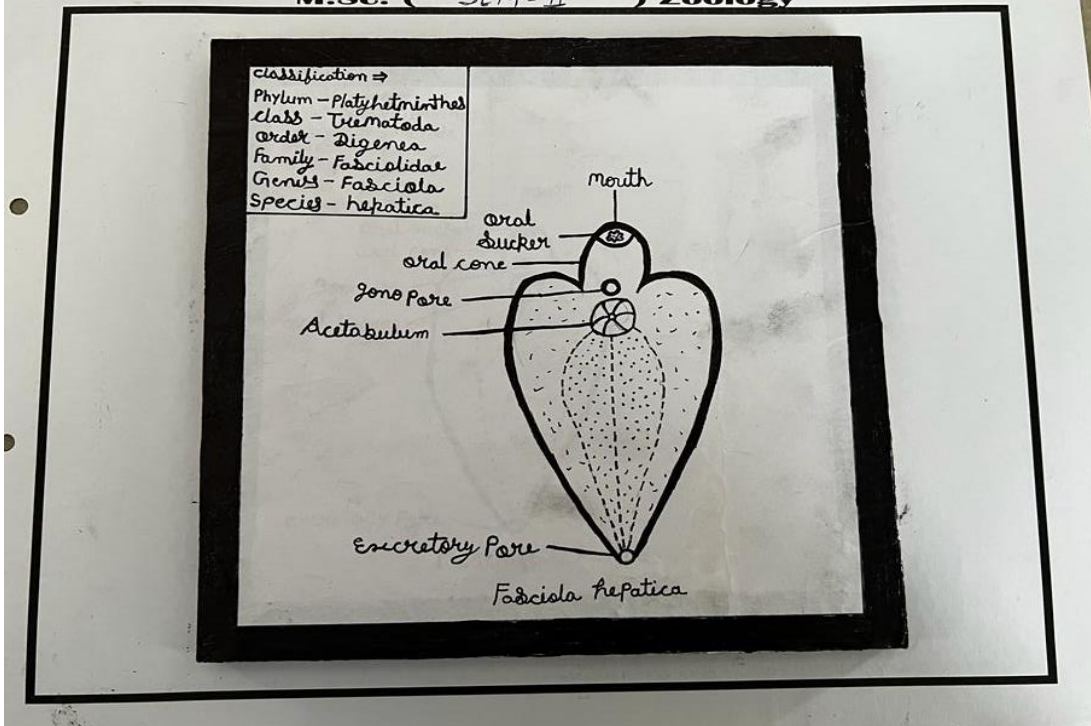 M.Sc. ( Sem-II ) Zoology
classification ⇒
Phylum - Platyhelminthes
class - Trematoda
order - Digenea
Family - Fasciolidae
Genus - Fasciola
Species - hepatica
mouth
oral
Sucker
oral cone
gono pore
Acetabulum
Excretory Pore
Fasciola hepatica